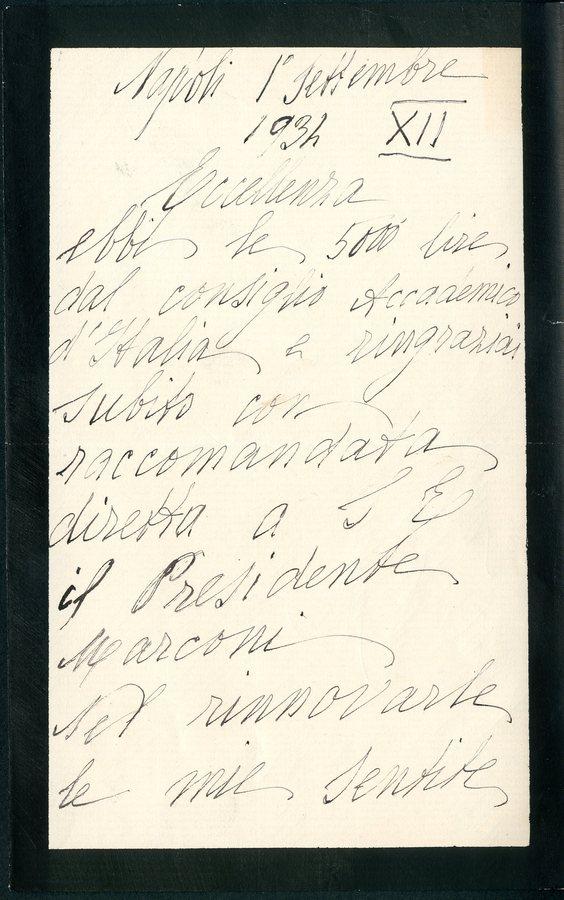 Napoli 1° Settembre
1934 XII
Eccellenza
ebbi le 5000 lire
dal consiglio Accademico
d'Italia e ringraziai
subito con
raccomandata
diretta a S E
il Presidente
Marconi
Nel rinnovarle
le mie sentite